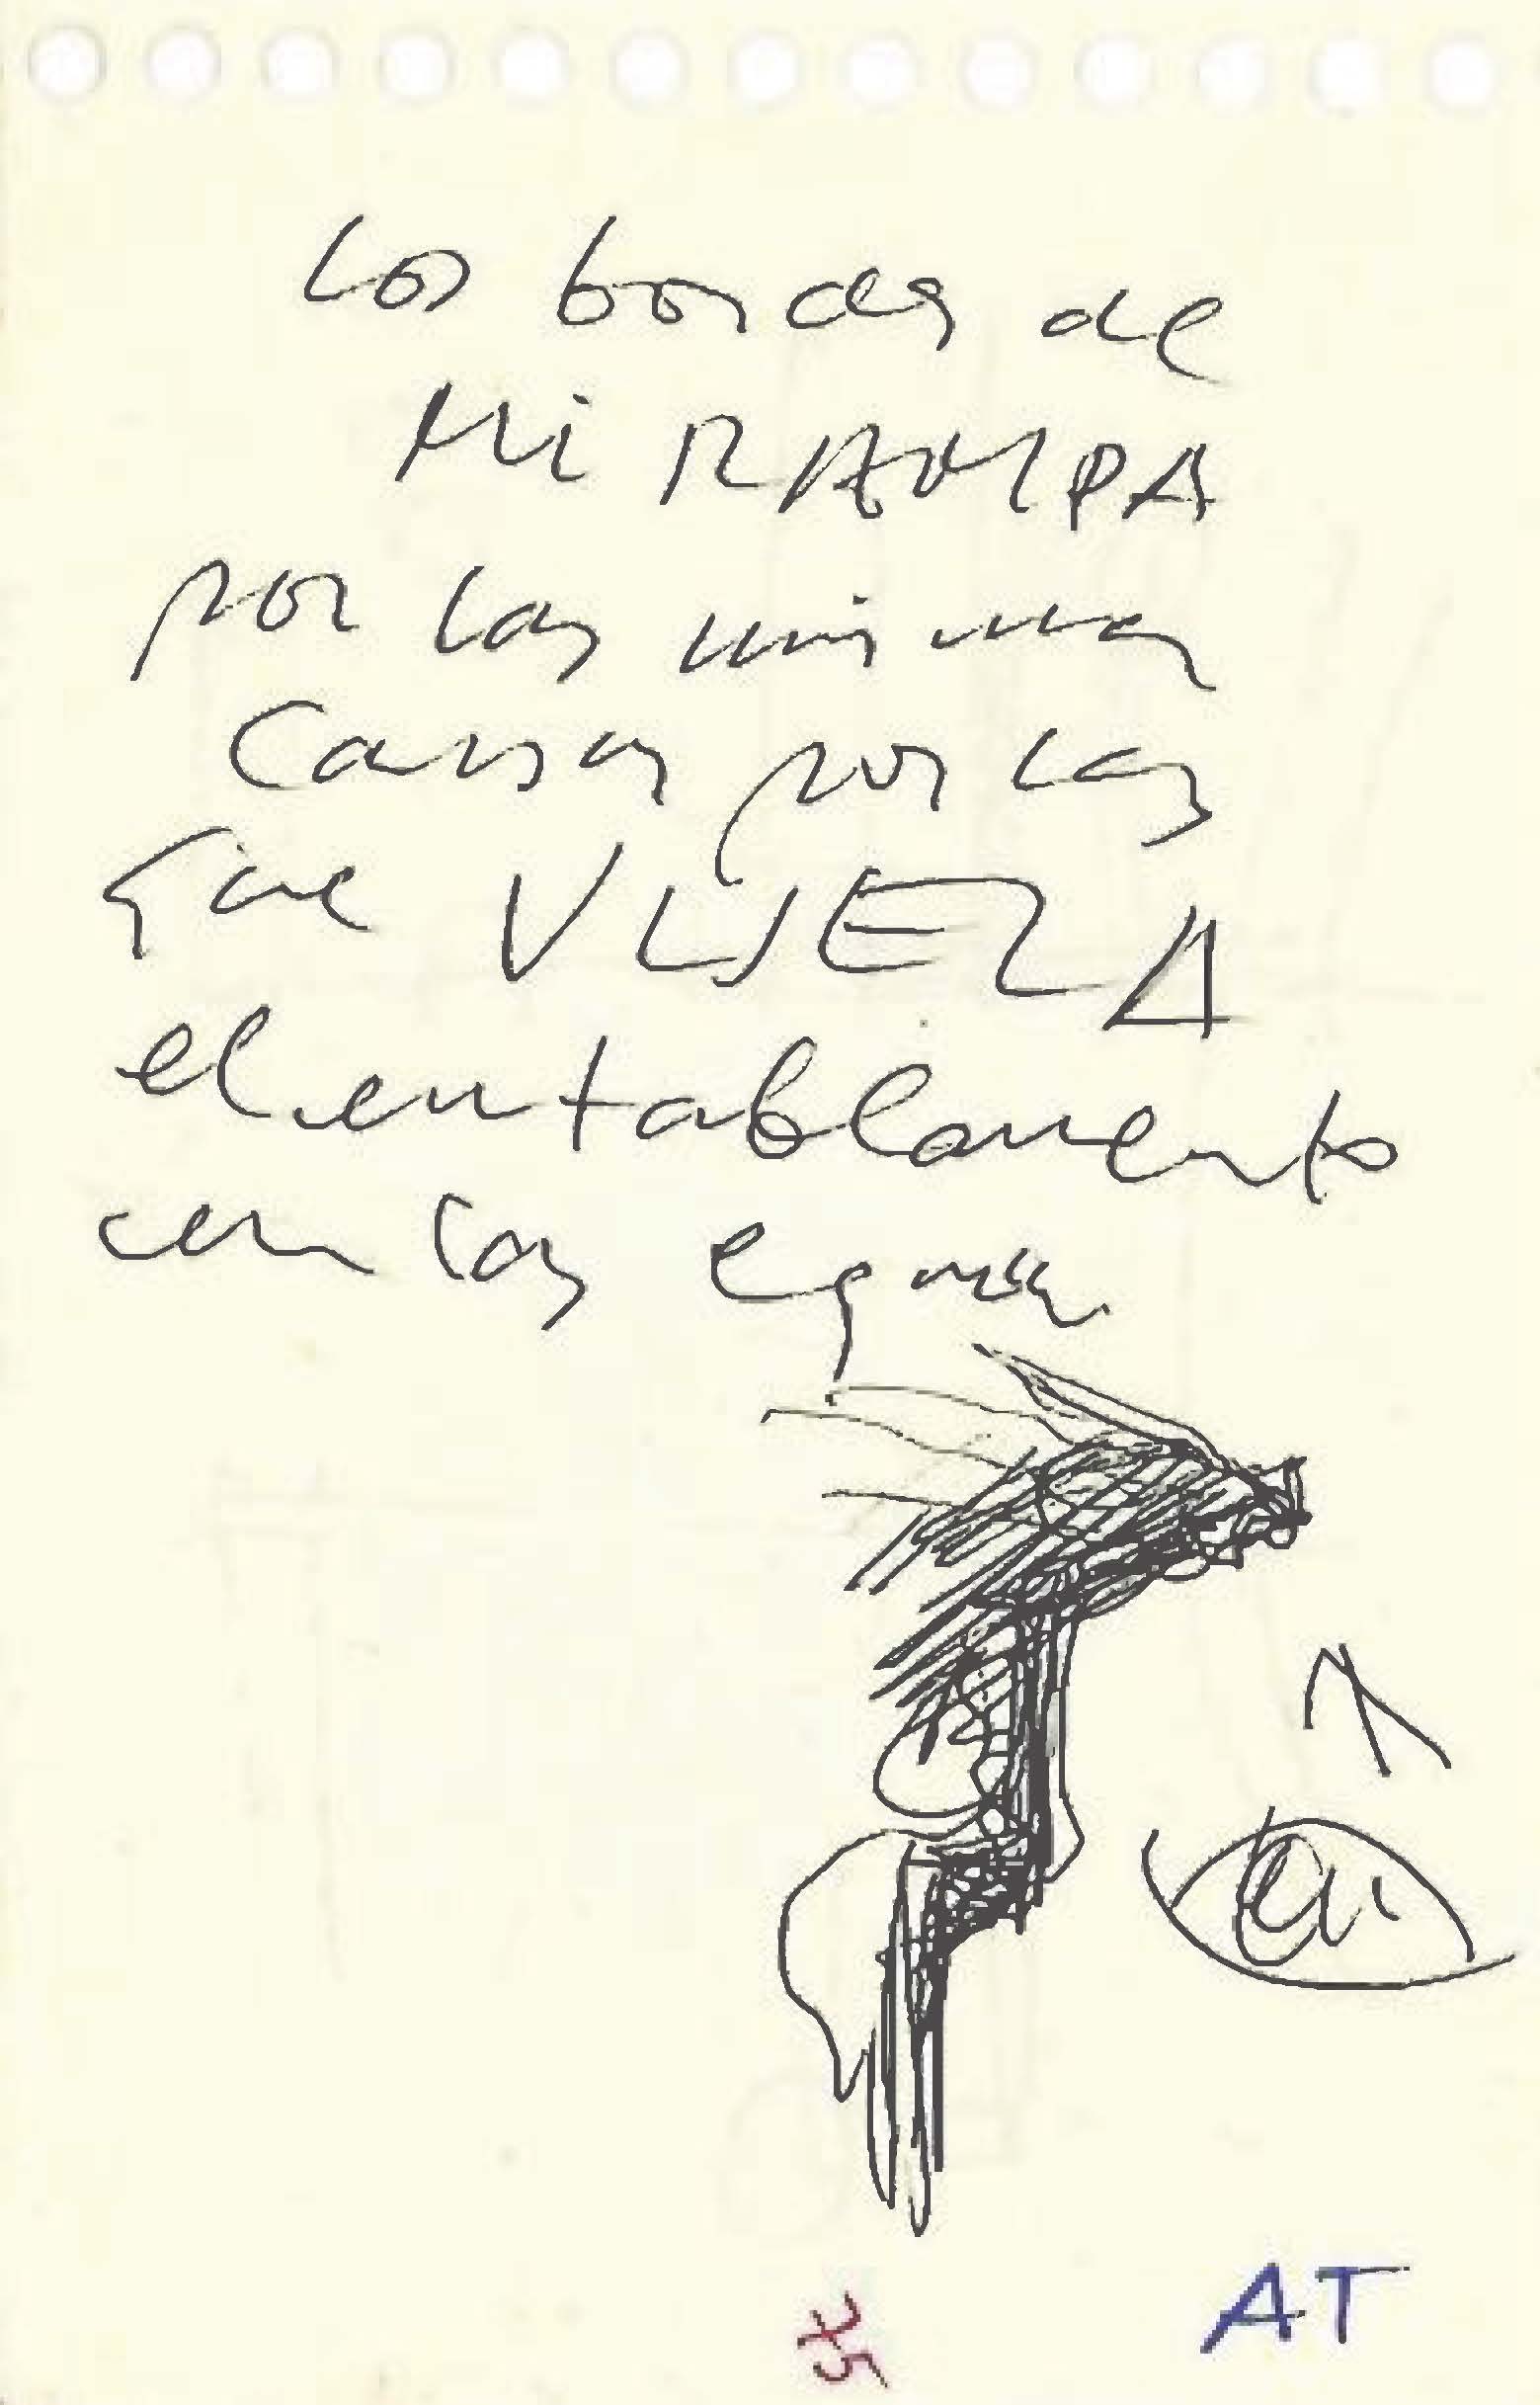 los bordes de
Mi RAMPA
por las mismas
Causas por las
que VUELA
el entablamento
en las esquinas
AT
75